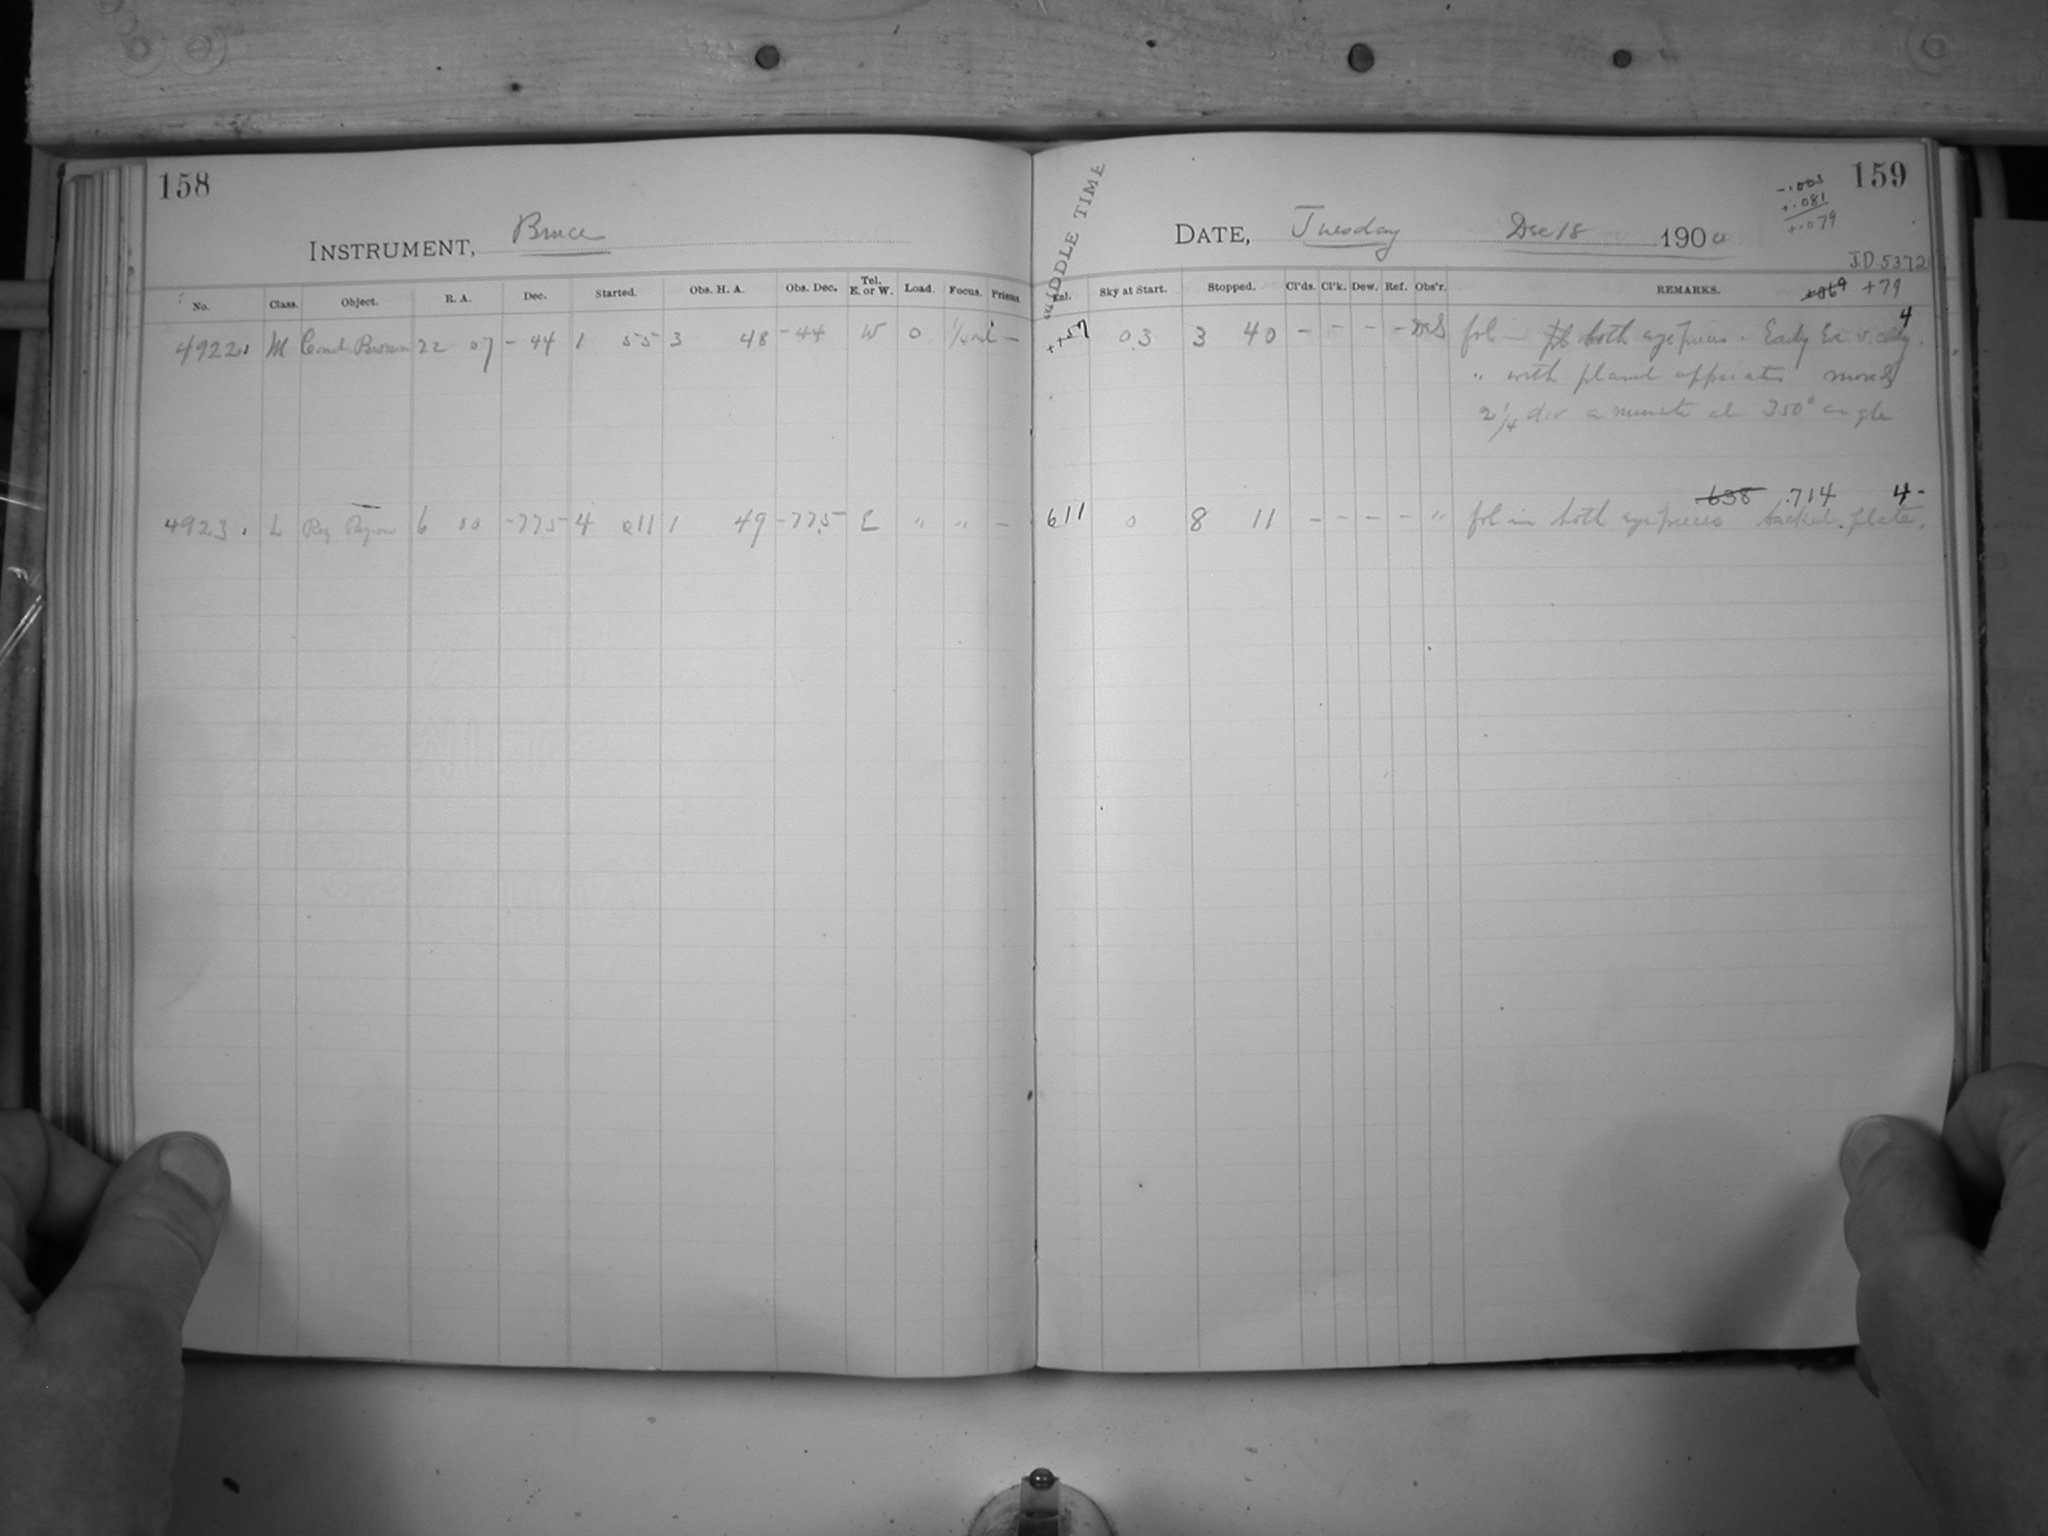 158
INSTRUMENT, Bruce
No. Class. Object. R. A. Dec. Started. Obs. H. A. Obs. Dec. Tel. E. or W. Load. Focus. Prisms
4922 M 22 07 - 44 1 55 3 48 - 44 W 0 —
4923 L Reg Region 6 00 -77.5 4 11 1 49 -77.5 E " " —
MIDDLE TIME
159
-.003
+.081
+.079
DATE, Tuesday Dec 18 1900
J.D. 5372
Sky at Start. Stopped. Cl'ds. Cl'k. Dew. Ref. Obs'r. REMARKS. +79
0.3 3 40 – – – – fol in both eyepieces. Early Ex v. cldy. 4
" with planet apparatus moved
2 1/4 div a minute at 350° angle
638 .714 4-
611 0 8 11 – – – – " fol in both eyepieces backed plate.